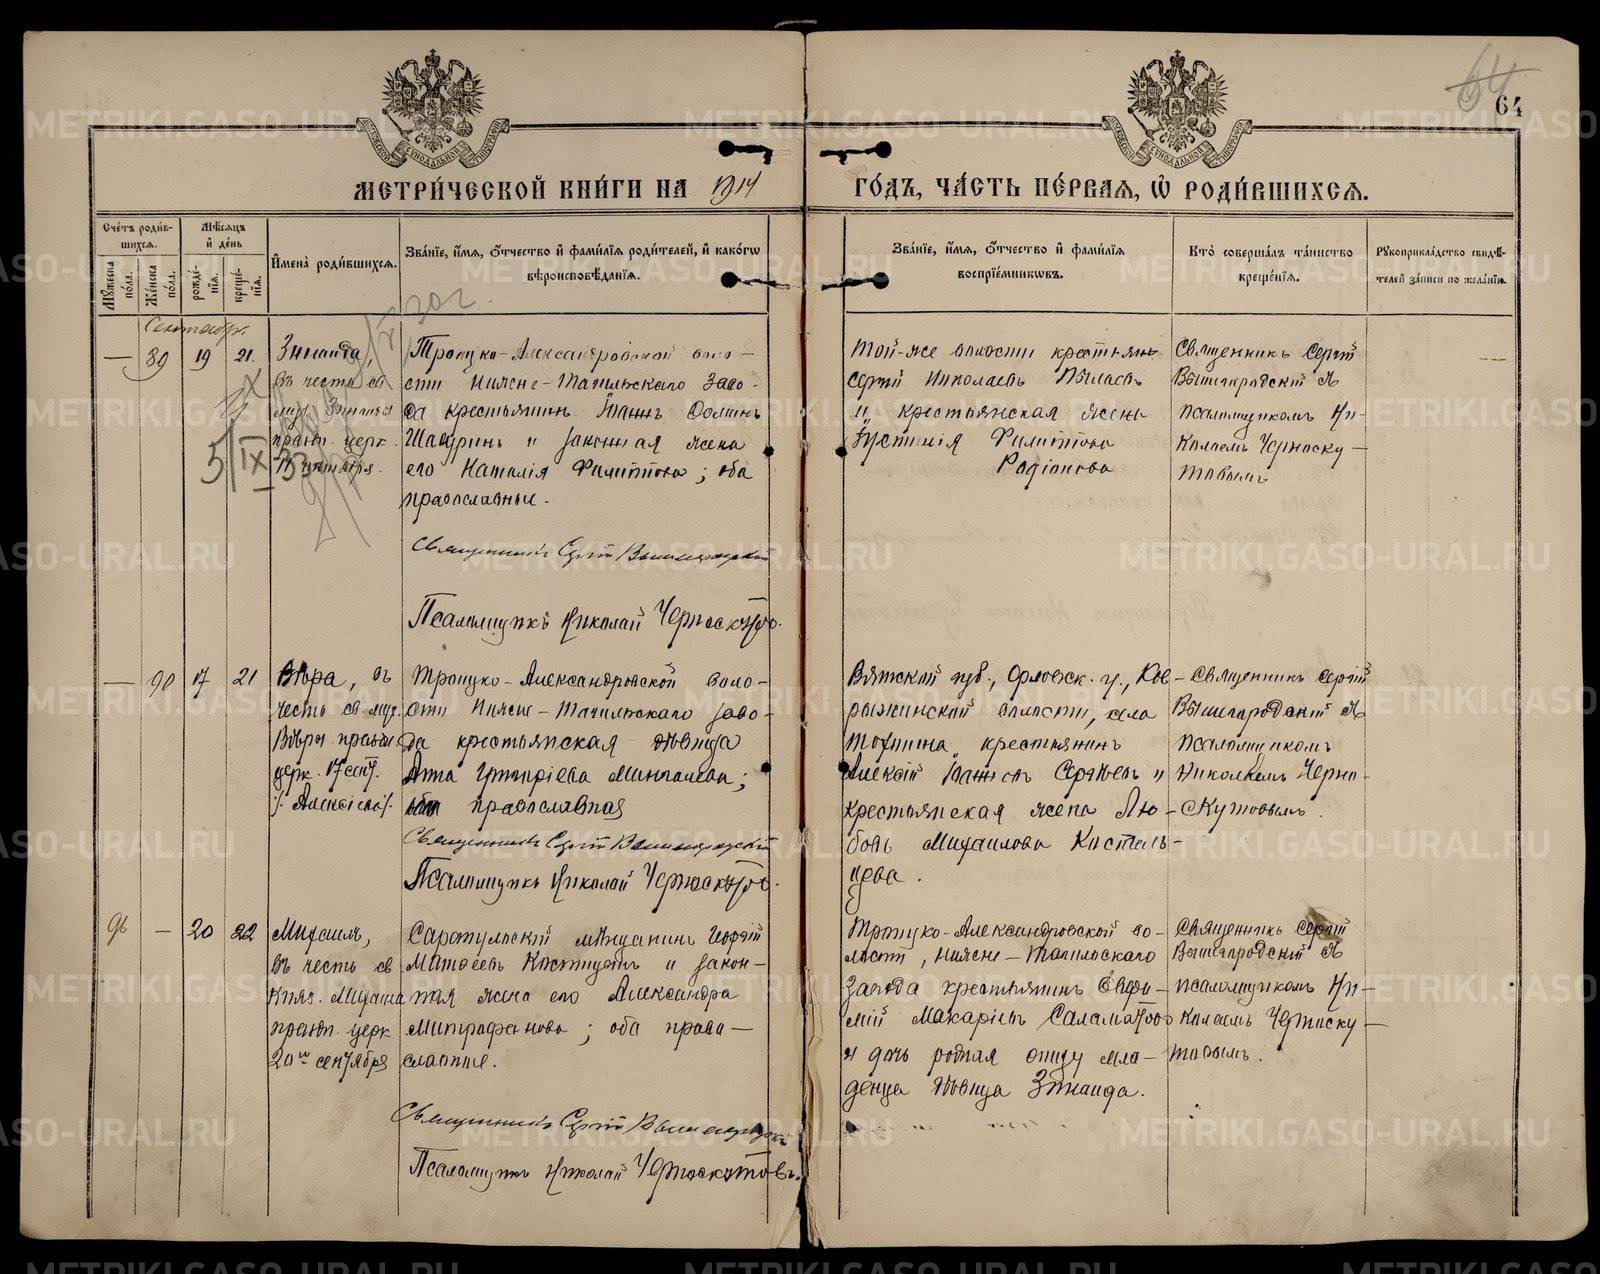 64
64
МЕТРИ́ЧЕСКОЙ КНИ́ГИ НА 1914 ГО́ДЪ, ЧА́СТЬ ПЕ́РВАЯ, Ѿ РОДИ́ВШИХСЯ.
Сче́тъ роди́в-
шихся.
Мѣ́сяцъ
и҆ де́нь
И҆мена̀ роди́вшихся.
Зва́нїе, и҆́мя, ѻ҆́тчество и҆ фами́лїя роди́телей, и҆ како́гѡ
вѣроисповѣ́данїя.
Зва́нїе, и҆́мя, ѻ҆́тчество и҆ фами́лїя
воспрїе́мниковъ.
Кто̀ соверша́лъ та́инство
креще́нїя.
Рꙋкоприкла́дство свидѣ́-
телей за́писи по жела́нїю.
Мꙋ́жеска
по́ла.
Же́нска
по́ла.
рожде́-
нїя.
креще́-
нїя.
Сентябрь
— 89 19 21.
Зинаида,
въ честь св
муч. Зинаиды
празн. церк.
5/IX 33
Троицко-Александровской воло-
сти Нижне-Тагильскаго заво-
да крестьянинъ Іоаннъ Ѳоминъ
Шадринъ и законная жена
его Наталія Филиппова; оба
православные.
Священникъ Сергій Вышегородскій
Псаломщикъ Николай Черноскутовъ.
Той-же волости крестьянинъ
Сергій Николаевъ
и крестьянская жена
Іустинія Филиппова
Родіонова
Священникъ Сергій
Вышегородскій съ
псаломщикомъ Ни-
колаемъ Черноску-
товымъ
— 90 17 21
Вѣра, въ
честь св. муч.
Вѣры празн.
церк. 17 сент.
/: Алексіева :/
Троицко-Александровской воло-
сти Нижне-Тагильскаго заво-
да крестьянская дѣвица
Анна Григоріева Мингалева;
православная
Священникъ Сергій Вышегородскій
Псаломщикъ Николай Черноскутовъ.
Вятской губ., Орловск. у., Ков-
рыжинской волости, села
крестьянинъ
Алексій Іанновъ Сергѣевъ и
крестьянская жена Лю-
бовь Михаилова Косталь-
цева.
Священникъ Сергій
Вышегородскій съ
псаломщикомъ
Николаемъ Черно-
скутовымъ.
96 — 20 22
Михаилъ,
въ честь св
княз. Михаила
празн. церк
20го сентября
Сарапульскій мѣщанинъ Георгій
Матѳеевъ Костицынъ и закон-
ная жена его Александра
Митрофанова; оба право-
славные.
Священникъ Сергій Вышегородскій
Псаломщикъ Николай Черноскутовъ.
Троицко-Александровской во-
лости, Нижне-Тагильскаго
завода крестьянинъ Евфи-
мій Макаріевъ Саламатовъ
и дочь родная отцу мла-
денца дѣвица Зинаида.
Священникъ Сергій
Вышегородскій съ
псаломщикомъ Ни-
колаемъ Черноску-
товымъ.
METRIKI.GASO-URAL.RU